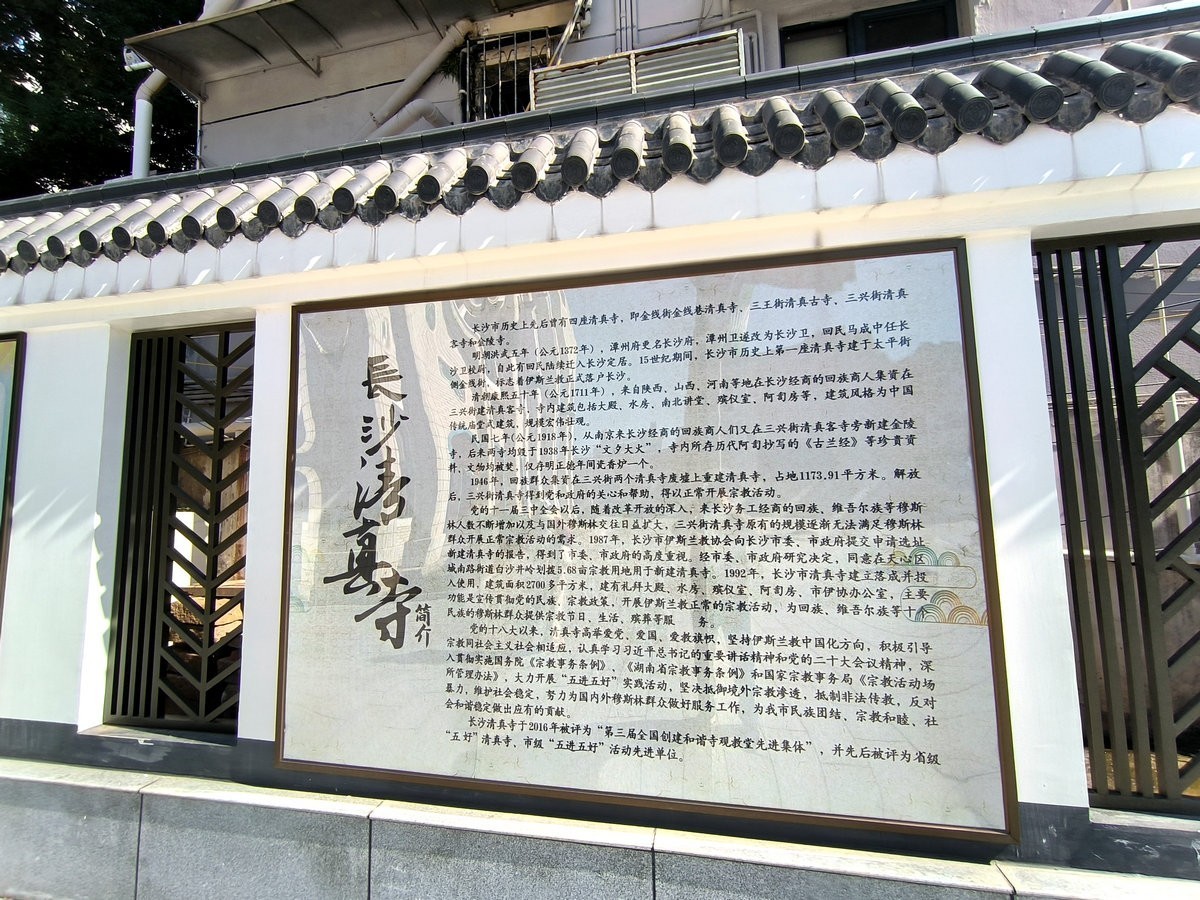 長沙清真寺
简介
长沙市历史上先后曾有四座清真寺，即金线街金线巷清真寺、三王街清真古寺，三兴街清真
客寺和公陵寺。
明朝洪武五年（公元1372年），潭州府更名长沙府，潭州卫遂改为长沙卫，回民马成中任长
沙卫校尉，自此有回民陆续迁入长沙定居。15世纪期间，长沙市历史上第一座清真寺建于太平街
侧金线街，标志着伊斯兰教正式落户长沙。
清朝康熙五十年（公元1711年），来自陕西、山西、河南等地在长沙经商的回族商人集资在
三兴街建清真客寺，寺内建筑包括大殿、水房、南北讲堂、殡仪室、阿訇房等，建筑风格为中国
传统庙堂式建筑，规模宏伟壮观。
民国七年(公元1918年)，从南京来长沙经商的回族商人们又在三兴街清真客寺旁新建金陵
寺，后来两寺均毁于1938年长沙“文夕大火”，寺内所存历代阿訇抄写的《古兰经》等珍贵资
料、文物均被焚，仅存明正德年间瓷香炉一个。
1946年，回族群众集资在三兴街两个清真寺废墟上重建清真寺，占地1173.91平方米。解放
后，三兴街清真寺得到党和政府的关心和帮助，得以正常开展宗教活动。
党的十一届三中全会以后，随着改革开放的深入，来长沙务工经商的回族、维吾尔族等穆斯
林人数不断增加以及与国外穆斯林交往日益扩大，三兴街清真寺原有的规模逐渐无法满足穆斯林
群众开展正常宗教活动的需求。1987年，长沙市伊斯兰教协会向长沙市委、市政府提交申请选址
新建清真寺的报告，得到了市委、市政府的高度重视。经市委、市政府研究决定，同意在天心区
城南路街道白沙井岭划拨5.68亩宗教用地用于新建清真寺。1992年，长沙市清真寺建立落成并投
入使用，建筑面积2700多平方米，建有礼拜大殿、水房、殡仪室、阿訇房、市伊协办公室，主要
功能是宣传贯彻党的民族、宗教政策，开展伊斯兰教正常的宗教活动，为回族、维吾尔族等十个
民族的穆斯林群众提供宗教节日、生活、殡葬等服 务。
党的十八大以来，清真寺高举爱党、爱国、爱教旗帜，坚持伊斯兰教中国化方向，积极引导
宗教同社会主义社会相适应，认真学习习近平总书记的重要讲话精神和党的二十大会议精神，深
入贯彻实施国务院《宗教事务条例》，《湖南省宗教事务条例》和国家宗教事务局《宗教活动场
所管理办法》，大力开展“五进五好”实践活动，坚决抵御境外宗教渗透，抵制非法传教，反对
暴力，维护社会稳定，努力为国内外穆斯林群众做好服务工作，为我市民族团结、宗教和睦、社
会和谐稳定做出应有的贡献。
长沙清真寺于2016年被评为“第三届全国创建和谐寺观教堂先进集体”，并先后被评为省级
“五好”清真寺、市级“五进五好”活动先进单位。